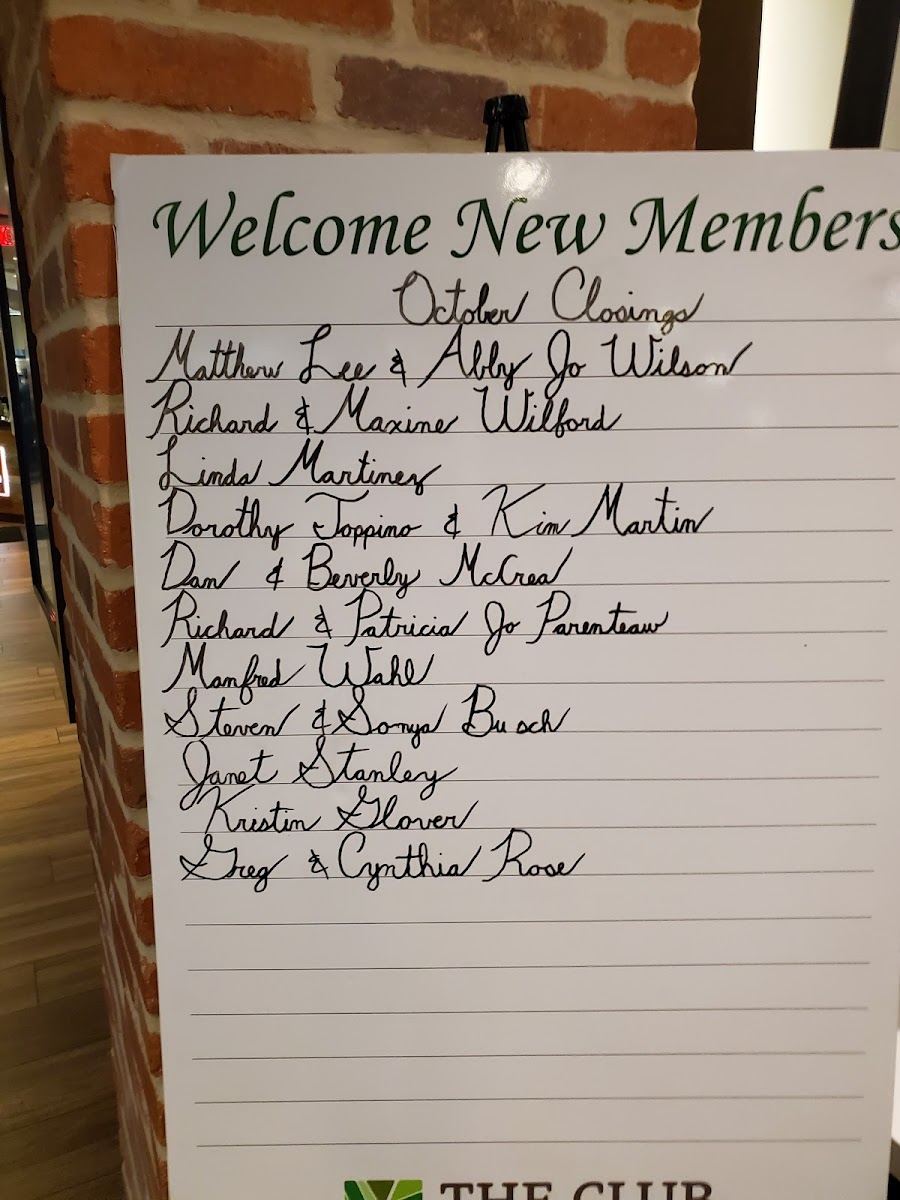 Welcome New Members
October Closings
Matthew Lee & Abby Jo Wilson
Richard & Maxine Wilford
Linda Martinez
Dorothy Toppino & Kim Martin
Dan & Beverly McCrea
Richard & Patricia Jo Parenteau
Manfred Wahl
Steven & Sonya Busch
Janet Stanley
Kristin Glover
Greg & Cynthia Rose
THE CLUB